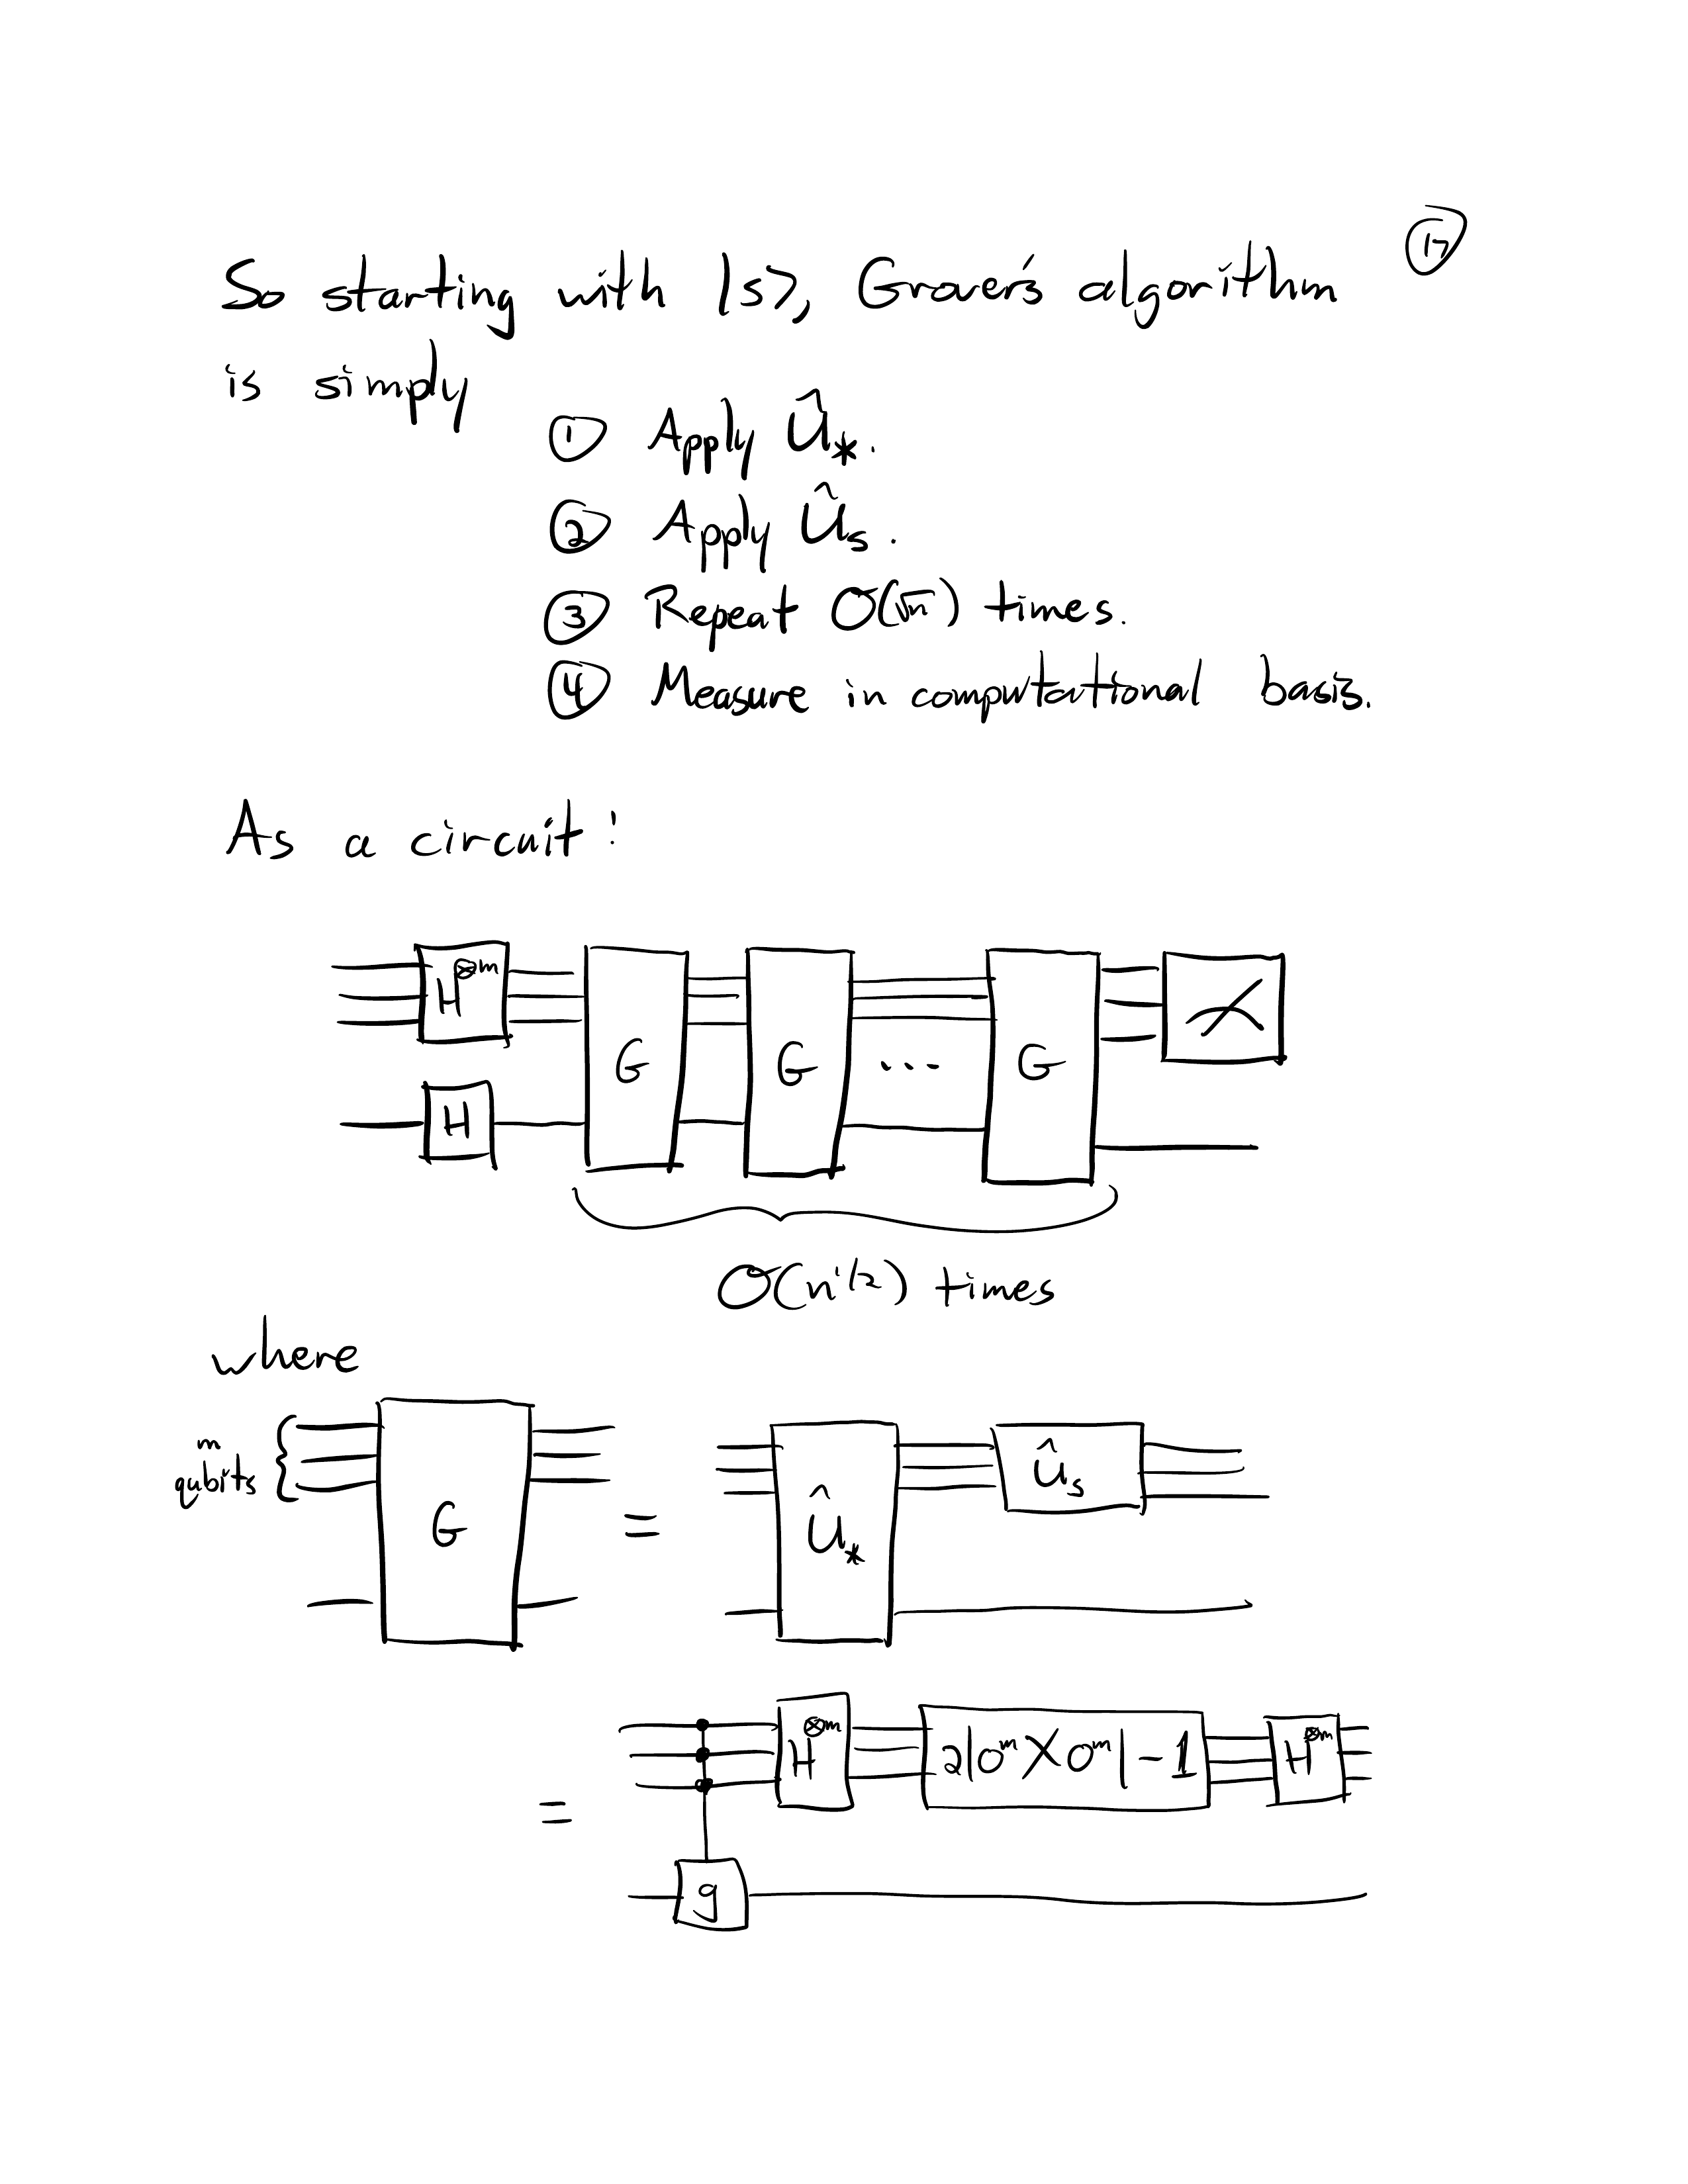 17
So starting with |s⟩, Grover's algorithm
is simply
① Apply Û_*.
② Apply Û_s.
③ Repeat O(√n) times.
④ Measure in computational basis.
As a circuit:
H^{⊗m}
G G ... G
H
O(n^{1/2}) times
where
m
qubits
G = Û_* Û_s
= H^{⊗m} 2|0^m⟩⟨0^m| - 1 H^{⊗m}
g